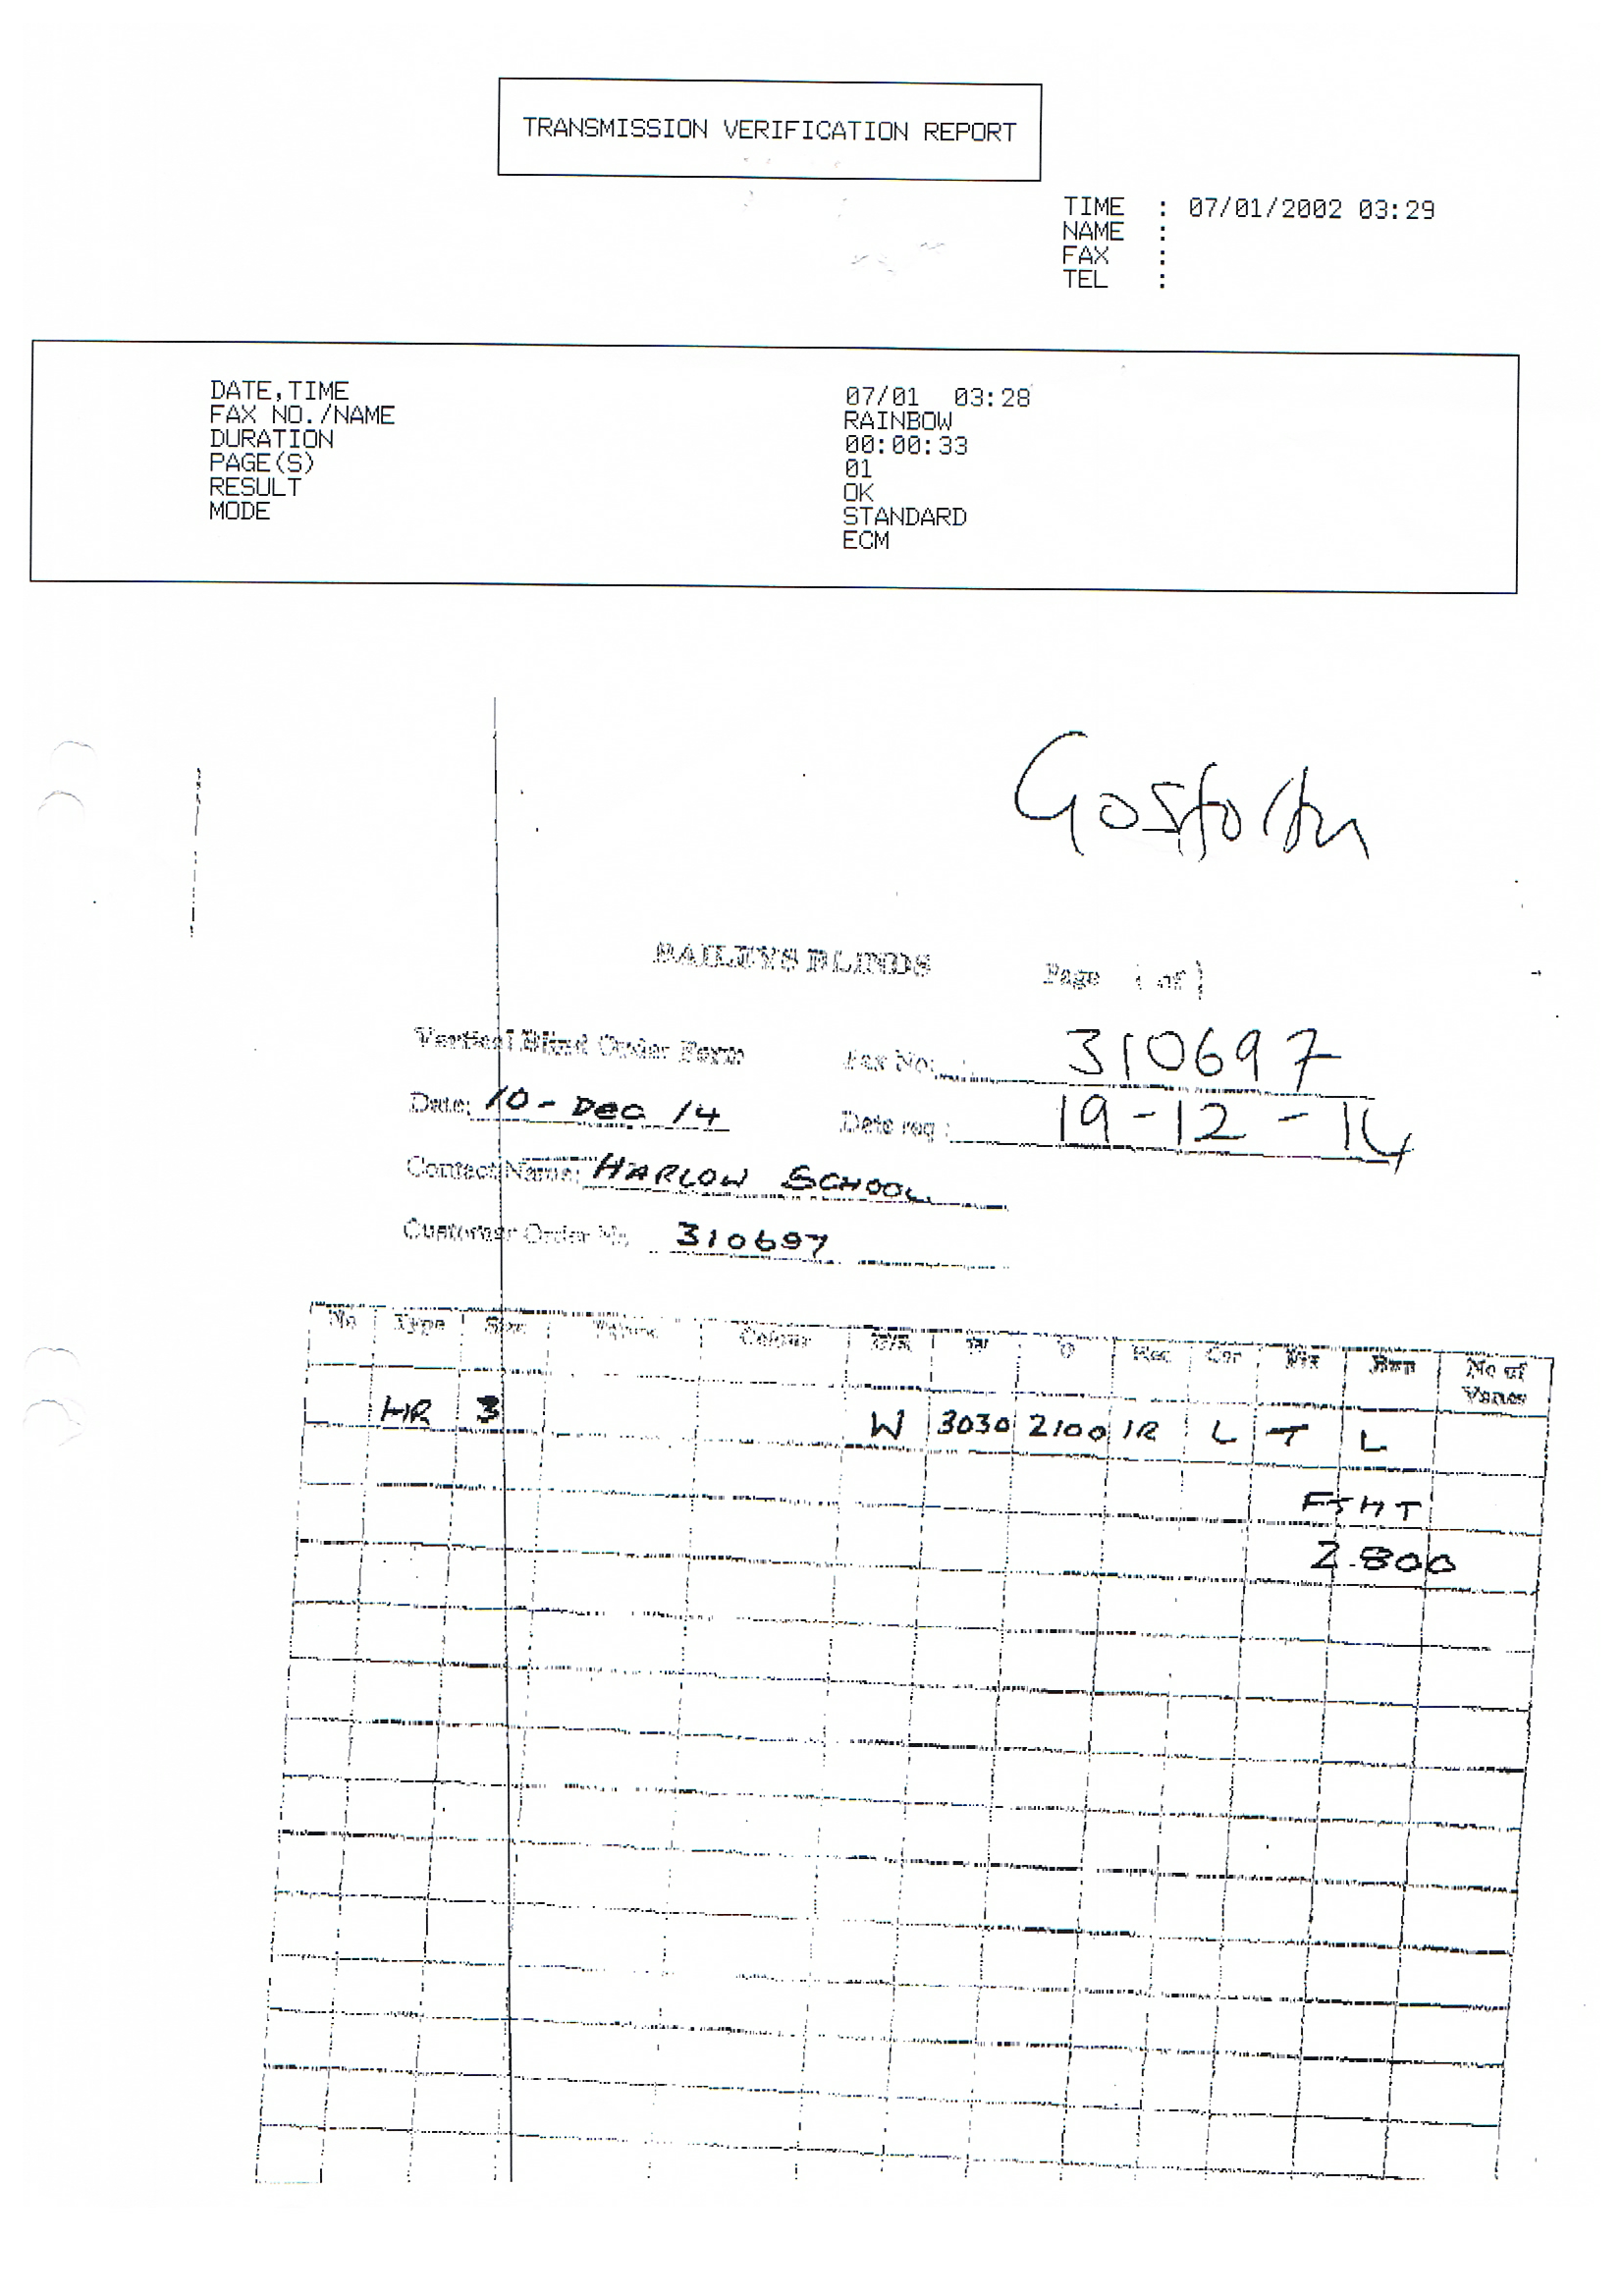 TRANSMISSION VERIFICATION REPORT
TIME : 07/01/2002 03:29
NAME :
FAX :
TEL :
DATE,TIME 07/01 03:28
FAX NO./NAME RAINBOW
DURATION 00:00:33
PAGE(S) 01
RESULT OK
MODE STANDARD
ECM
Gosforth
BAILEYS BLINDS Page 1 of 1
Vertical Blind Order Form Fax No: 310697
Date: 10 - Dec 14 Date req : 19-12-14
Contact Name: HARLOW SCHOOL
Customer Order No 310697
No Type Size Colour W D Rec Cor Fix No of
Vanes
HR 3 W 3030 2100 1R L T L
2.800